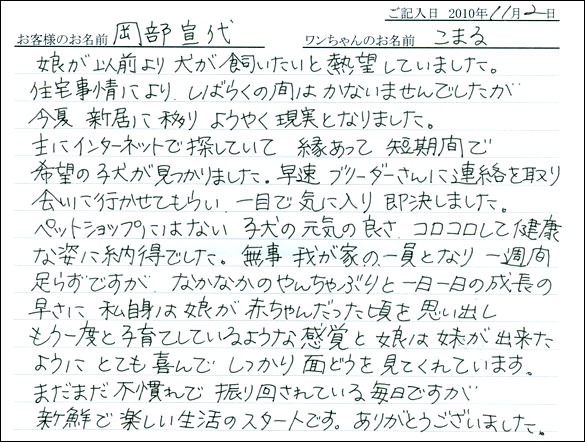 ご記入日 2010年11月2日
お客様のお名前 岡部宣代 ワンちゃんのお名前 こまる
娘が以前より犬が飼いたいと熱望していました。
住宅事情により、しばらくの間はかないませんでしたが
今夏 新居に移り ようやく現実となりました。
主にインターネットで探していて 縁あって 短期間で
希望の子犬が見つかりました。早速 ブリーダーさんに連絡を取り
会いに行かせてもらい、一目で気に入り 即決しました。
ペットショップにはない 子犬の元気の良さ、コロコロして健康
な姿に納得でした。無事 我が家の一員となり 一週間
足らずですが、なかなかのやんちゃぶりと一日一日の成長の
早さに 私自身は娘が赤ちゃんだった頃を思い出し
もう一度と子育てしているような感覚と 娘は妹が出来た
ように とても喜んで しっかり面どうを見てくれています。
まだまだ不慣れで 振り回されている毎日ですが
新鮮で楽しい生活のスタートです。ありがとうございました。